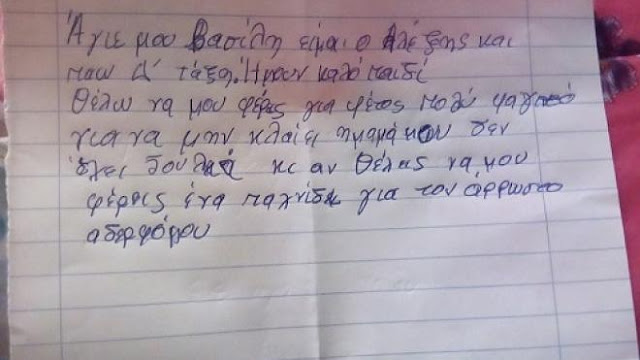 Άγιε μου Βασίλη είμαι ο Αλέξης και
παω Δ' τάξη. Ήμουν καλό παιδί
Θέλω να μου φέρεις για φέτος πολύ φαγητό
για να μην κλαίει ημαμά μου δεν
έχει δουλειά κι αν θέλεις να μου
φέρεις ένα παχνίδι για τον άρρωστο
αδερφόμου